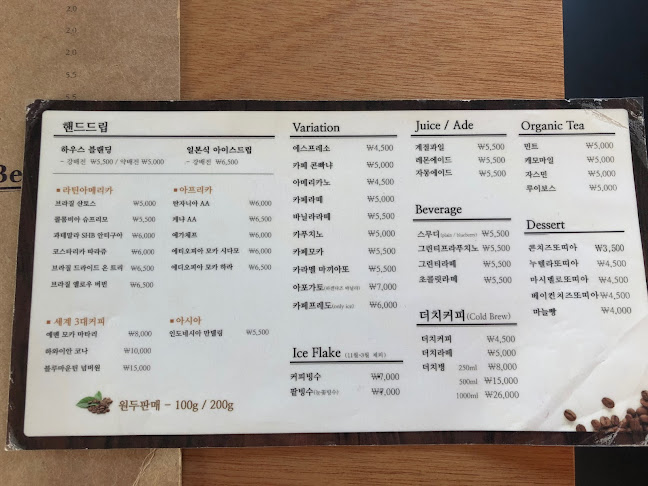 2.0
2.5
2.5
Be
핸드드립
하우스 블랜딩
- 강배전 ₩5,500 / 약배전 ₩5,000
일본식 아이스드립
- 강배전 ₩6,500
라틴아메리카
브라질 산토스 ₩5,000
콜롬비아 슈프리모 ₩5,500
과테말라 SHB 안티구아 ₩6,000
코스타리카 따라쥬 ₩6,000
브라질 드라이드 온 트리 ₩6,500
브라질 옐로우 버번 ₩6,500
아프리카
탄자니아 AA ₩6,000
케냐 AA ₩6,500
예가체프 ₩6,000
에티오피아 모카 시다모 ₩6,000
에티오피아 모카 하라 ₩6,500
세계 3대커피
예멘 모카 마타리 ₩8,000
하와이안 코나 ₩10,000
블루마운틴 넘버원 ₩15,000
아시아
인도네시아 만델링 ₩5,500
원두판매 - 100g / 200g
Variation
에스프레소 ₩4,500
카페 콘빠냐 ₩5,000
아메리카노 ₩4,500
카페라떼 ₩5,000
바닐라라떼 ₩5,500
카푸치노 ₩5,000
카페모카 ₩5,500
카라멜 마끼아또 ₩5,500
아포가토 ₩7,000
카페프레도 ₩6,000
Ice Flake (11월-3월 제외)
커피빙수 ₩7,000
팥빙수(눈꽃빙수) ₩7,000
Juice / Ade
계절과일 ₩5,500
레몬에이드 ₩5,500
자몽에이드 ₩5,500
Beverage
스무디(plain / blueberry) ₩5,500
그린티프라푸치노 ₩5,500
그린티라떼 ₩5,500
초콜릿라떼 ₩5,500
더치커피 (Cold Brew)
더치커피 ₩4,500
더치라떼 ₩5,000
더치병 250ml ₩8,000
500ml ₩15,000
1000ml ₩26,000
Organic Tea
민트 ₩5,000
캐모마일 ₩5,000
자스민 ₩5,000
루이보스 ₩5,000
Dessert
콘치즈또띠아 ₩3,500
누텔라또띠아 ₩4,500
마시멜로또띠아 ₩4,500
베이컨치즈또띠아 ₩4,500
마늘빵 ₩4,000